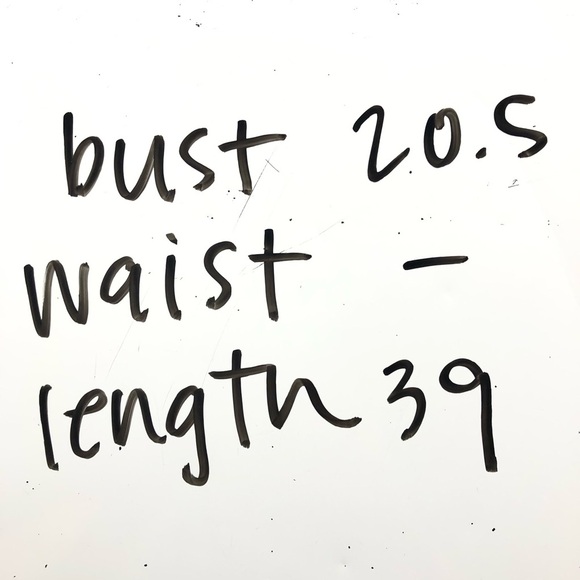 bust 20.5
waist -
length 39